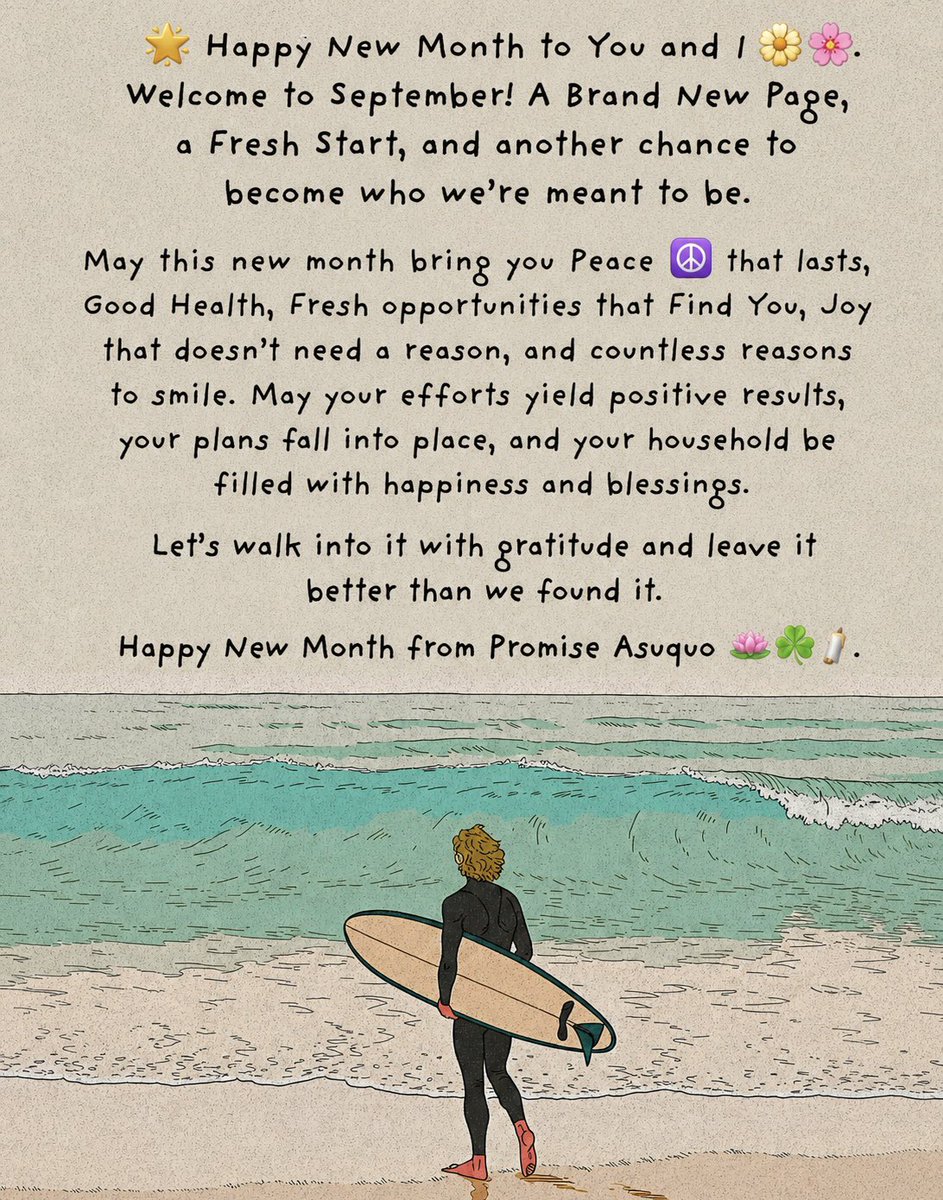 🌟 Happy New Month to You and I 🌼🌸.
Welcome to September! A Brand New Page,
a Fresh Start, and another chance to
become who we're meant to be.
May this new month bring you Peace ☮️ that lasts,
Good Health, Fresh opportunities that Find You, Joy
that doesn't need a reason, and countless reasons
to smile. May your efforts yield positive results,
your plans fall into place, and your household be
filled with happiness and blessings.
Let's walk into it with gratitude and leave it
better than we found it.
Happy New Month from Promise Asuquo 🪷☘️🕯️.